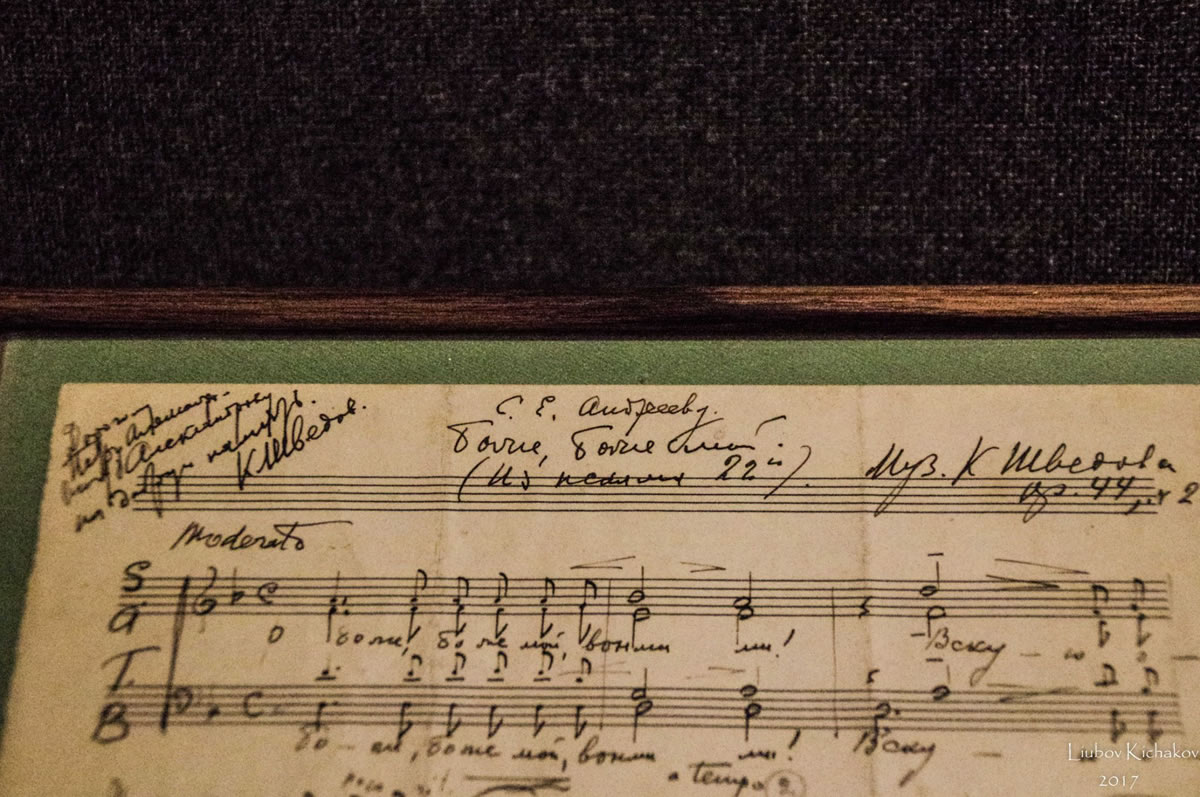 К Шведов.
С. Е. Андрееву.
Боже, Боже мой.
(Из псалма 22й).
Муз. К Шведова
ор. 44, № 2
Moderato
S
A
О боже, боже мой, вонми ми! Вску – ю
T
B
бо – же, боже мой, вонми ми! Вску –
a tempo 2
Liubov Kichakov
2017